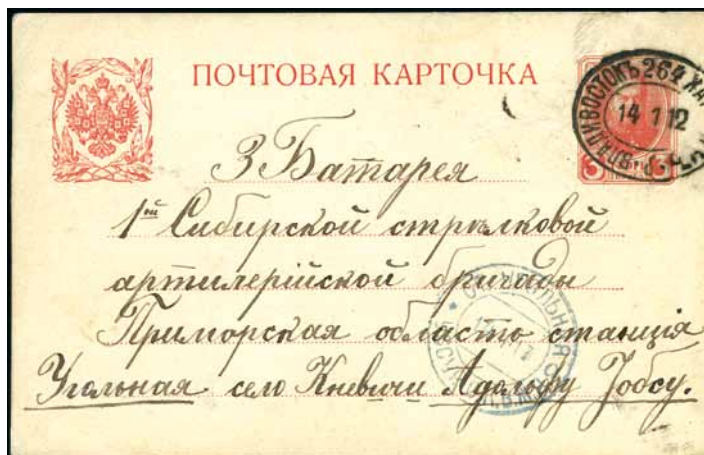 ПОЧТОВАЯ КАРТОЧКА
ВЛАДИВОСТОКЪ 264
14 1 12
3 Батарея
1ой Сибирской стрѣлковой
артилерійской бригады
Приморская область станція
Угольная село Кневичи Адольфу Іобсу.